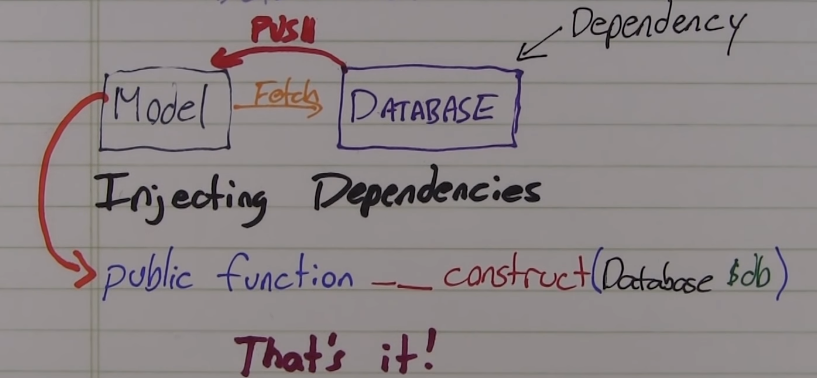 PUSH
Dependency
Model
Fetch
DATABASE
Injecting Dependencies
public function __ construct(Database $db)
That's it!